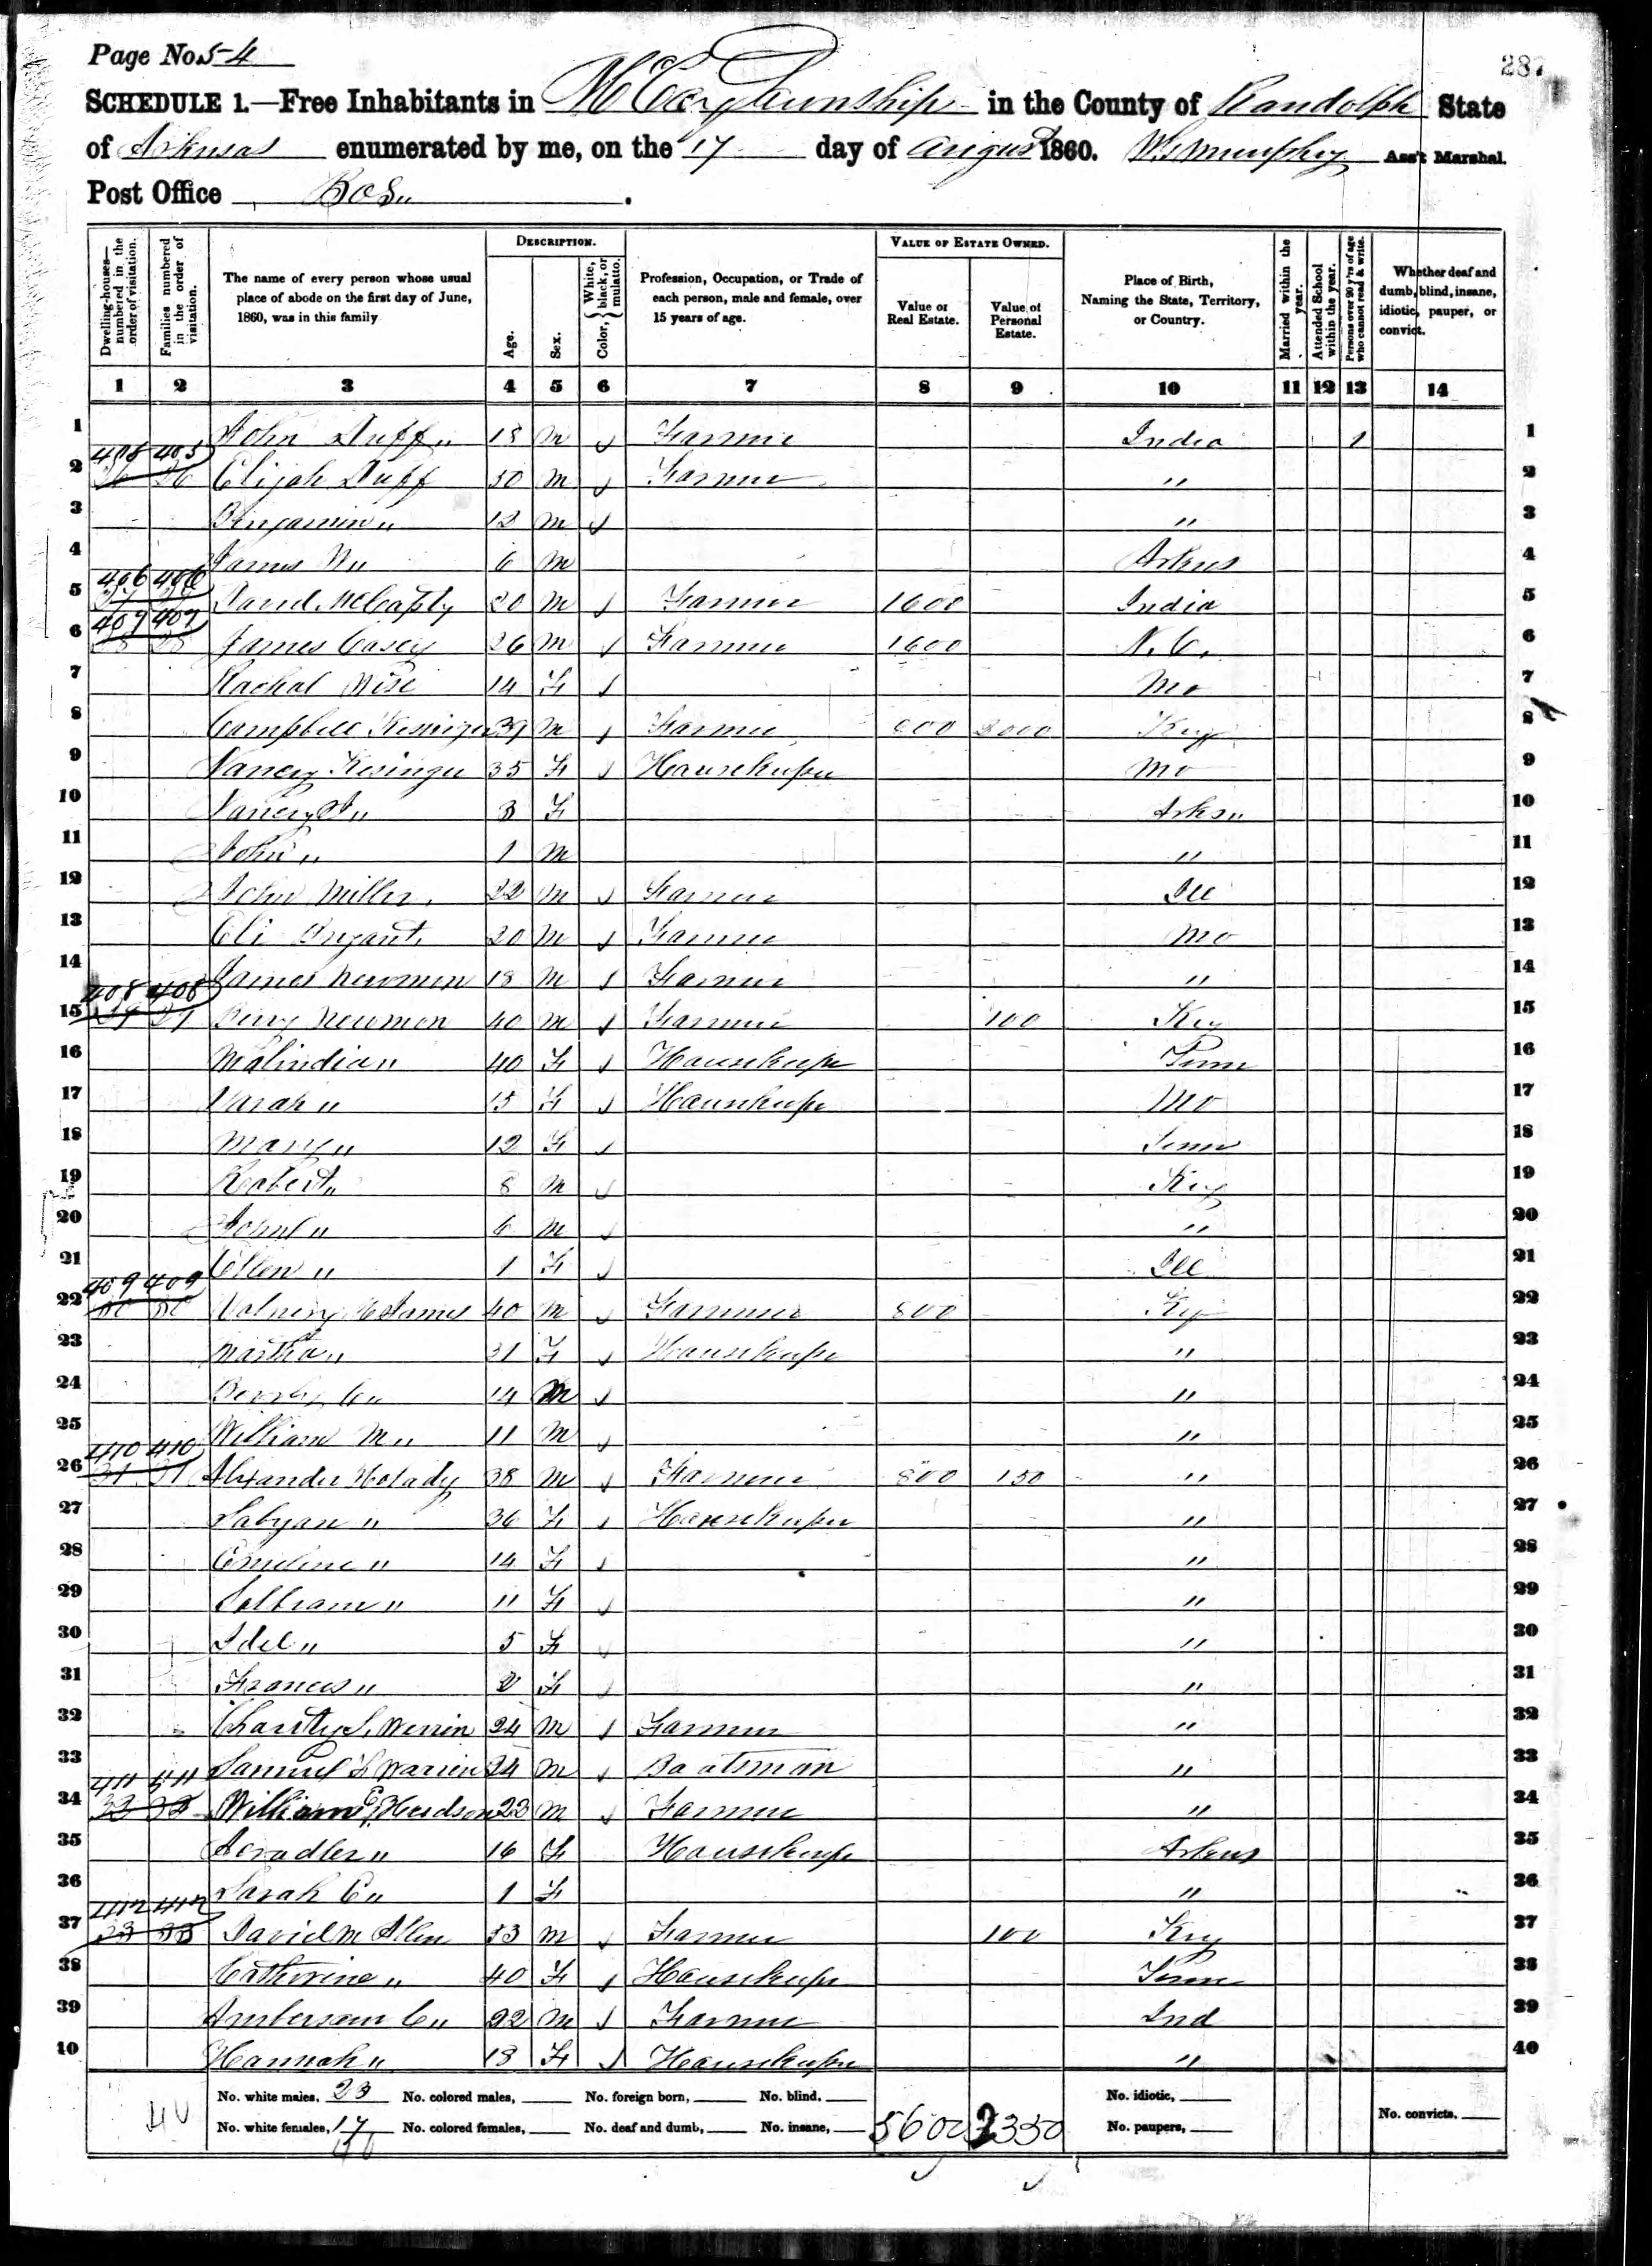 Page No. 54
287
SCHEDULE 1.—Free Inhabitants in Township in the County of Randolph State
of Arkansas enumerated by me, on the 17 day of August 1860. Wm Murphy Ass't Marshal.
Post Office
Dwelling-houses—numbered in the order of visitation. Families numbered in the order of visitation. The name of every person whose usual place of abode on the first day of June, 1860, was in this family DESCRIPTION. Age. Sex. Color, White, black, or mulatto. Profession, Occupation, or Trade of each person, male and female, over 15 years of age. VALUE OF ESTATE OWNED. Value of Real Estate. Value of Personal Estate. Place of Birth, Naming the State, Territory, or Country. Married within the year. Attended School within the year. Persons over 20 y'rs of age who cannot read & write. Whether deaf and dumb, blind, insane, idiotic, pauper, or convict.
1 2 3 4 5 6 7 8 9 10 11 12 13 14
1 John Duff 18 m Farmer India 1 1
2 26 26 Elijah Duff 50 m Farmer " 2
3 Benjamin " 12 m " 3
4 James W " 6 m Arkns 4
5 406 406 David 20 m Farmer 1600 India 5
6 407 407 James Casey 26 m Farmer 1600 N. C. 6
7 Rachal Wise 14 F Mo 7
8 Campbell 39 m Farmer 600 2000 Ky 8
9 Nancy Kesinger 35 F Housekeeper Mo 9
10 Nancy J " 3 F Arkns 10
11 John " 1 m " 11
12 John Miller 22 m Farmer Ill 12
13 Eli Bryant 20 m Farmer Mo 13
14 James Newmon 18 m Farmer " 14
15 408 408 29 29 Berry Newmon 40 m Farmer 100 Ky 15
16 Malindia " 40 F Housekeper Tenn 16
17 Sarah " 15 F Housekeper Mo 17
18 Mary " 12 F Tenn 18
19 Robert " 8 m Ky 19
20 John " 6 m " 20
21 Ellen " 1 F Ill 21
22 409 409 30 30 40 m Farmer 800 Ky 22
23 Martha " 31 F Housekeper " 23
24 14 m " 24
25 William M " 11 m " 25
26 410 410 31 31 Alexander Holady 38 m Farmer 800 150 " 26
27 Sabyan " 36 F Housekeper " 27
28 Emeline " 14 F " 28
29 " 11 F " 29
30 Idel " 5 F " 30
31 Frances " 2 F " 31
32 Charity S. 24 m Farmer " 32
33 Samuel Warrien 24 m Boatsman " 33
34 411 411 32 32 William E Hudson 23 m Farmer " 34
35 " 16 F Housekeper Arkns 35
36 Sarah E " 1 F " 36
37 412 412 33 33 David M Allen 53 m Farmer 100 Ky 37
38 Catherine " 40 F Housekeper Tenn 38
39 Amberson C " 22 m Farmer Ind 39
40 Hannah " 18 F Housekeper " 40
No. white males, 23 No. colored males, No. foreign born, No. blind, No. idiotic,
40 No. white females, 17 No. colored females, No. deaf and dumb, No. insane, 5600 2350 No. paupers, No. convicts,
40